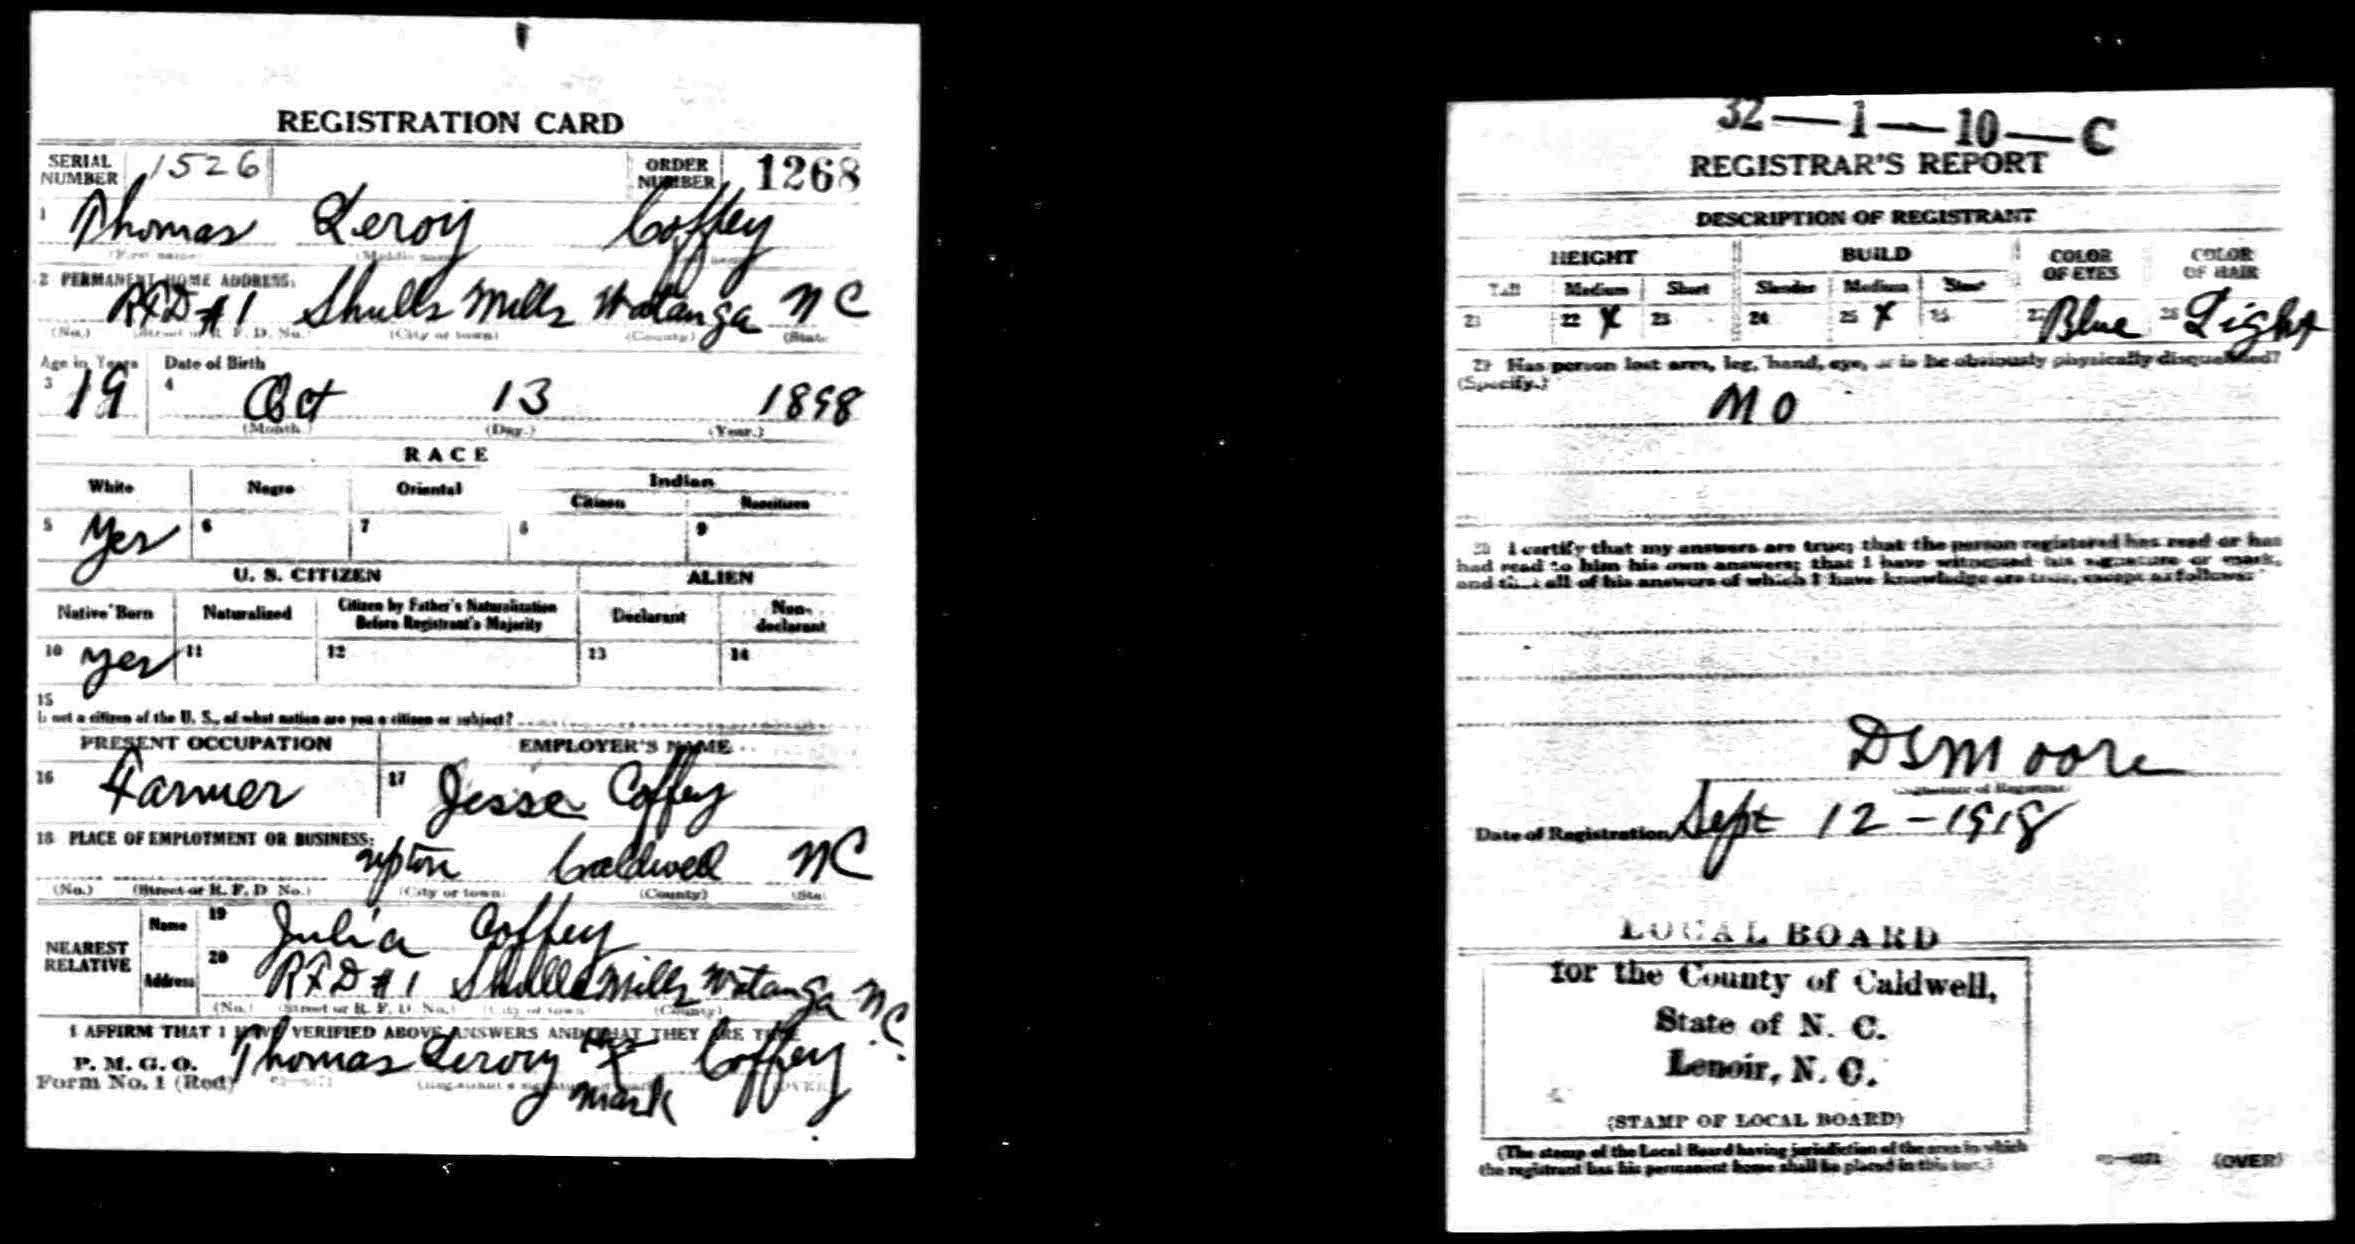 REGISTRATION CARD
SERIAL NUMBER 1526 ORDER NUMBER 1268
1 Thomas Leroy Coffey
(First name) (Middle name)
2 PERMANENT HOME ADDRESS:
RFD #1 Shulls Mills Watanga NC
(No.) (Street or R. F. D. No.) (City or town) (County) (State
Age in Years Date of Birth
3 19 4 Oct 13 1898
(Month.) (Day.) (Year.)
RACE
White Negro Oriental Indian
Citizen Noncitizen
5 Yes 6 7 8 9
U. S. CITIZEN ALIEN
Native Born Naturalized Citizen by Father's Naturalization Before Registrant's Majority Declarant Non-declarant
10 Yes 11 12 13 14
15
If not a citizen of the U. S., of what nation are you a citizen or subject?
PRESENT OCCUPATION EMPLOYER'S NAME
16 Farmer 17 Jesse Coffey
18 PLACE OF EMPLOYMENT OR BUSINESS:
upton Caldwell NC
(No.) (Street or R. F. D No.) (City or town) (County) (State
NEAREST RELATIVE
Name 19 Julia Coffey
Address 20 RFD #1 Shulls Mills Watanga NC
(No.) (Street or R. F. D. No.) (City or town) (County)
I AFFIRM THAT I HAVE VERIFIED ABOVE ANSWERS AND THAT THEY ARE TRUE
P. M. G. O.
Form No. 1 (Red)
Thomas Leroy his X mark Coffey
(Registrant's signature or mark) (OVER)
32—1—10—C
REGISTRAR'S REPORT
DESCRIPTION OF REGISTRANT
HEIGHT BUILD COLOR OF EYES COLOR OF HAIR
Tall Medium Short Slender Medium Stout
21 22 X 23 24 25 X 26 27 Blue 28 Light
29 Has person lost arm, leg, hand, eye, or is he obviously physically disqualified?
(Specify.)
No
30 I certify that my answers are true; that the person registered has read or has
had read to him his own answers; that I have witnessed his signature or mark,
and that all of his answers of which I have knowledge are true, except as follows:
D S Moore
(Signature of Registrar)
Date of Registration Sept 12-1918
LOCAL BOARD
for the County of Caldwell,
State of N. C.
Lenoir, N. C.
(STAMP OF LOCAL BOARD)
(The stamp of the Local Board having jurisdiction of the area in which
the registrant has his permanent home shall be placed in this box.)
(OVER)